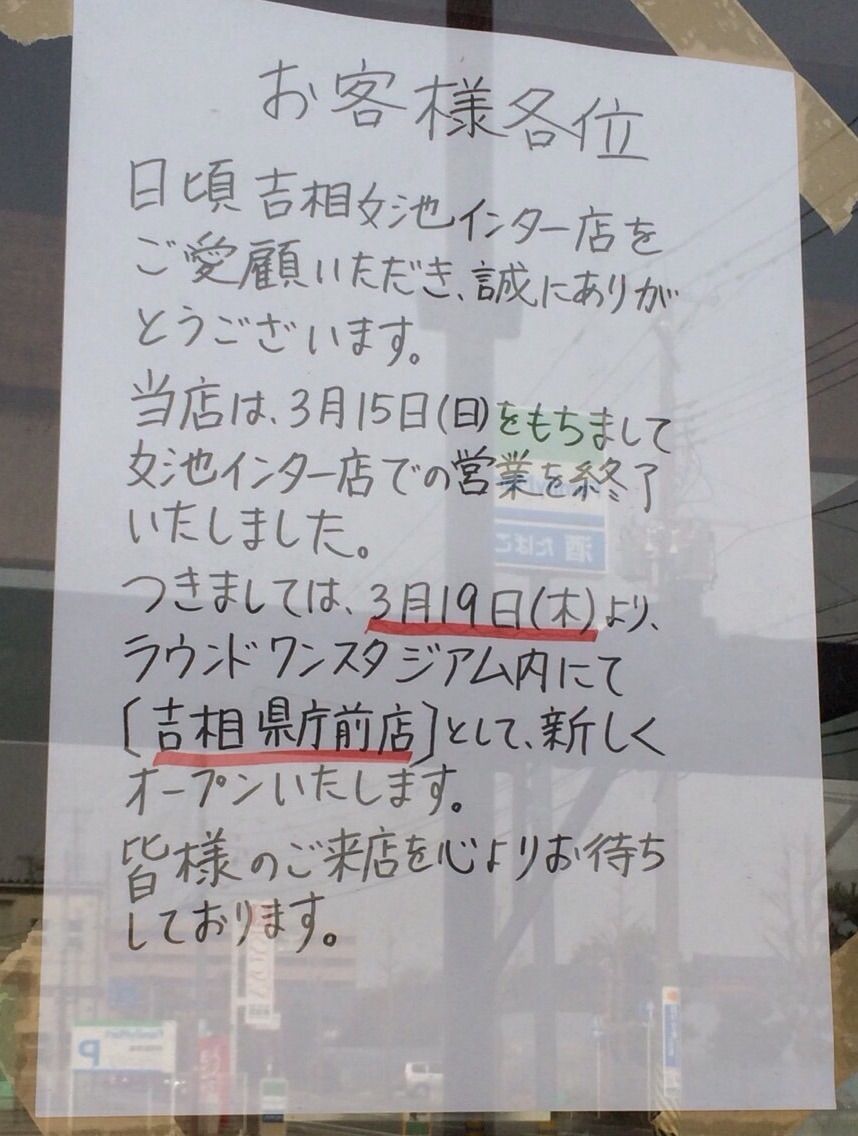 お客様各位
日頃吉相女池インター店を
ご愛顧いただき、誠にありが
とうございます。
当店は、3月15日(日)をもちまして
女池インター店での営業を終了
いたしました。
つきましては、3月19日(木)より、
ラウンドワンスタジアム内にて
[吉相県庁前店]として、新しく
オープンいたします。
皆様のご来店を心よりお待ち
しております。
酒 たばこ
P